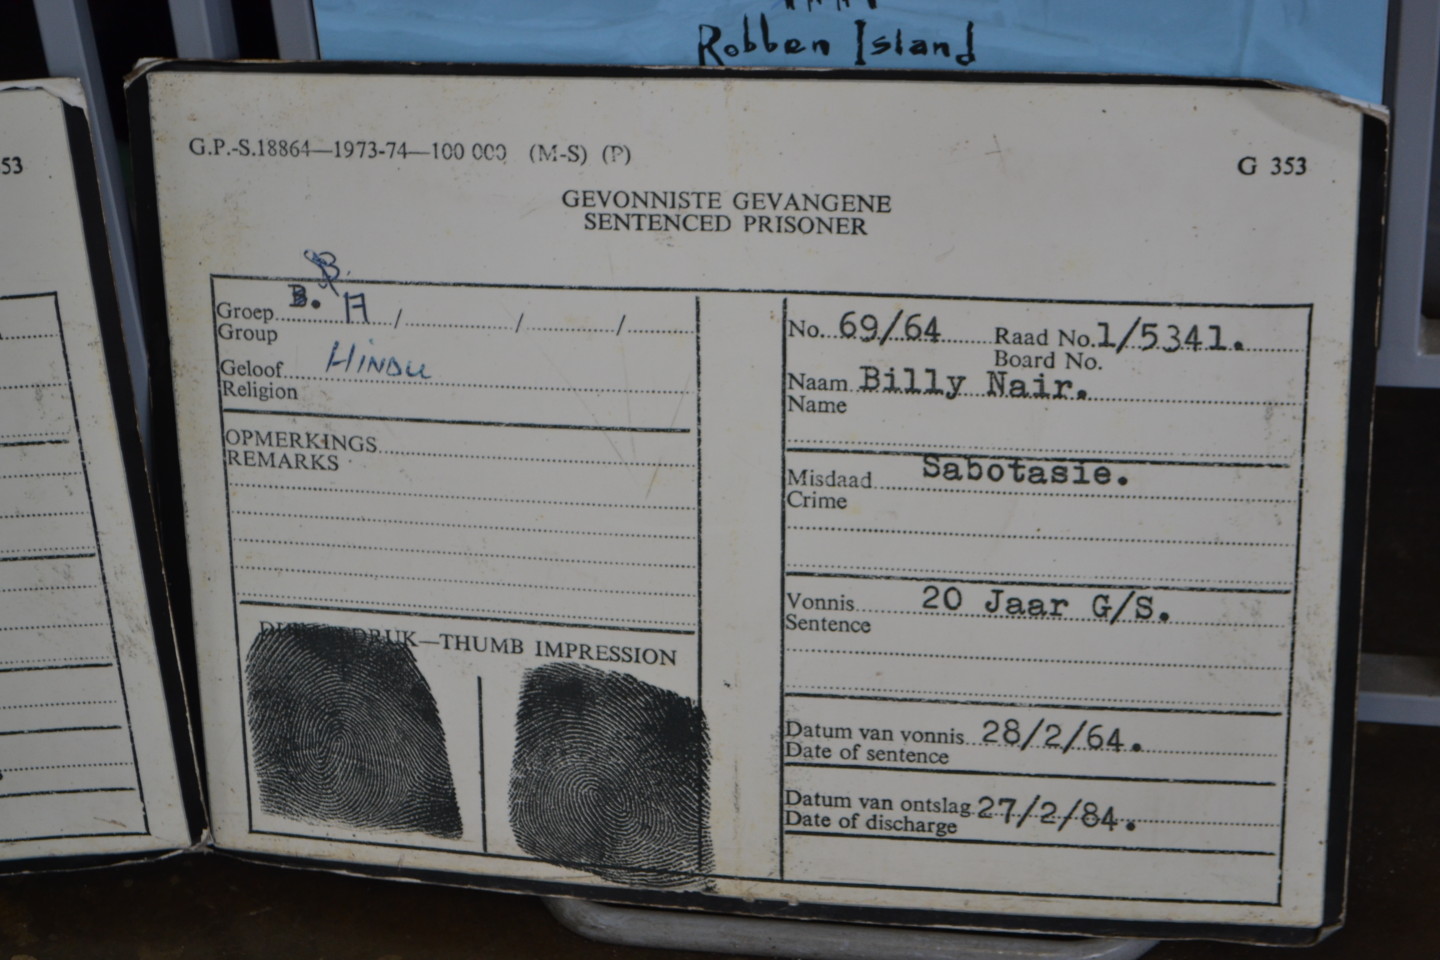 Robben Island
53
G.P.-S.18864—1973-74—100 000 (M-S) (P)
G 353
GEVONNISTE GEVANGENE
SENTENCED PRISONER
B.
Groep B. A / / /
Group
Geloof HINDU
Religion
OPMERKINGS
REMARKS
DRUK—THUMB IMPRESSION
No. 69/64 Raad No. 1/5341.
Board No.
Naam Billy Nair.
Name
Misdaad Sabotasie.
Crime
Vonnis 20 Jaar G/S.
Sentence
Datum van vonnis 28/2/64.
Date of sentence
Datum van ontslag 27/2/84.
Date of discharge